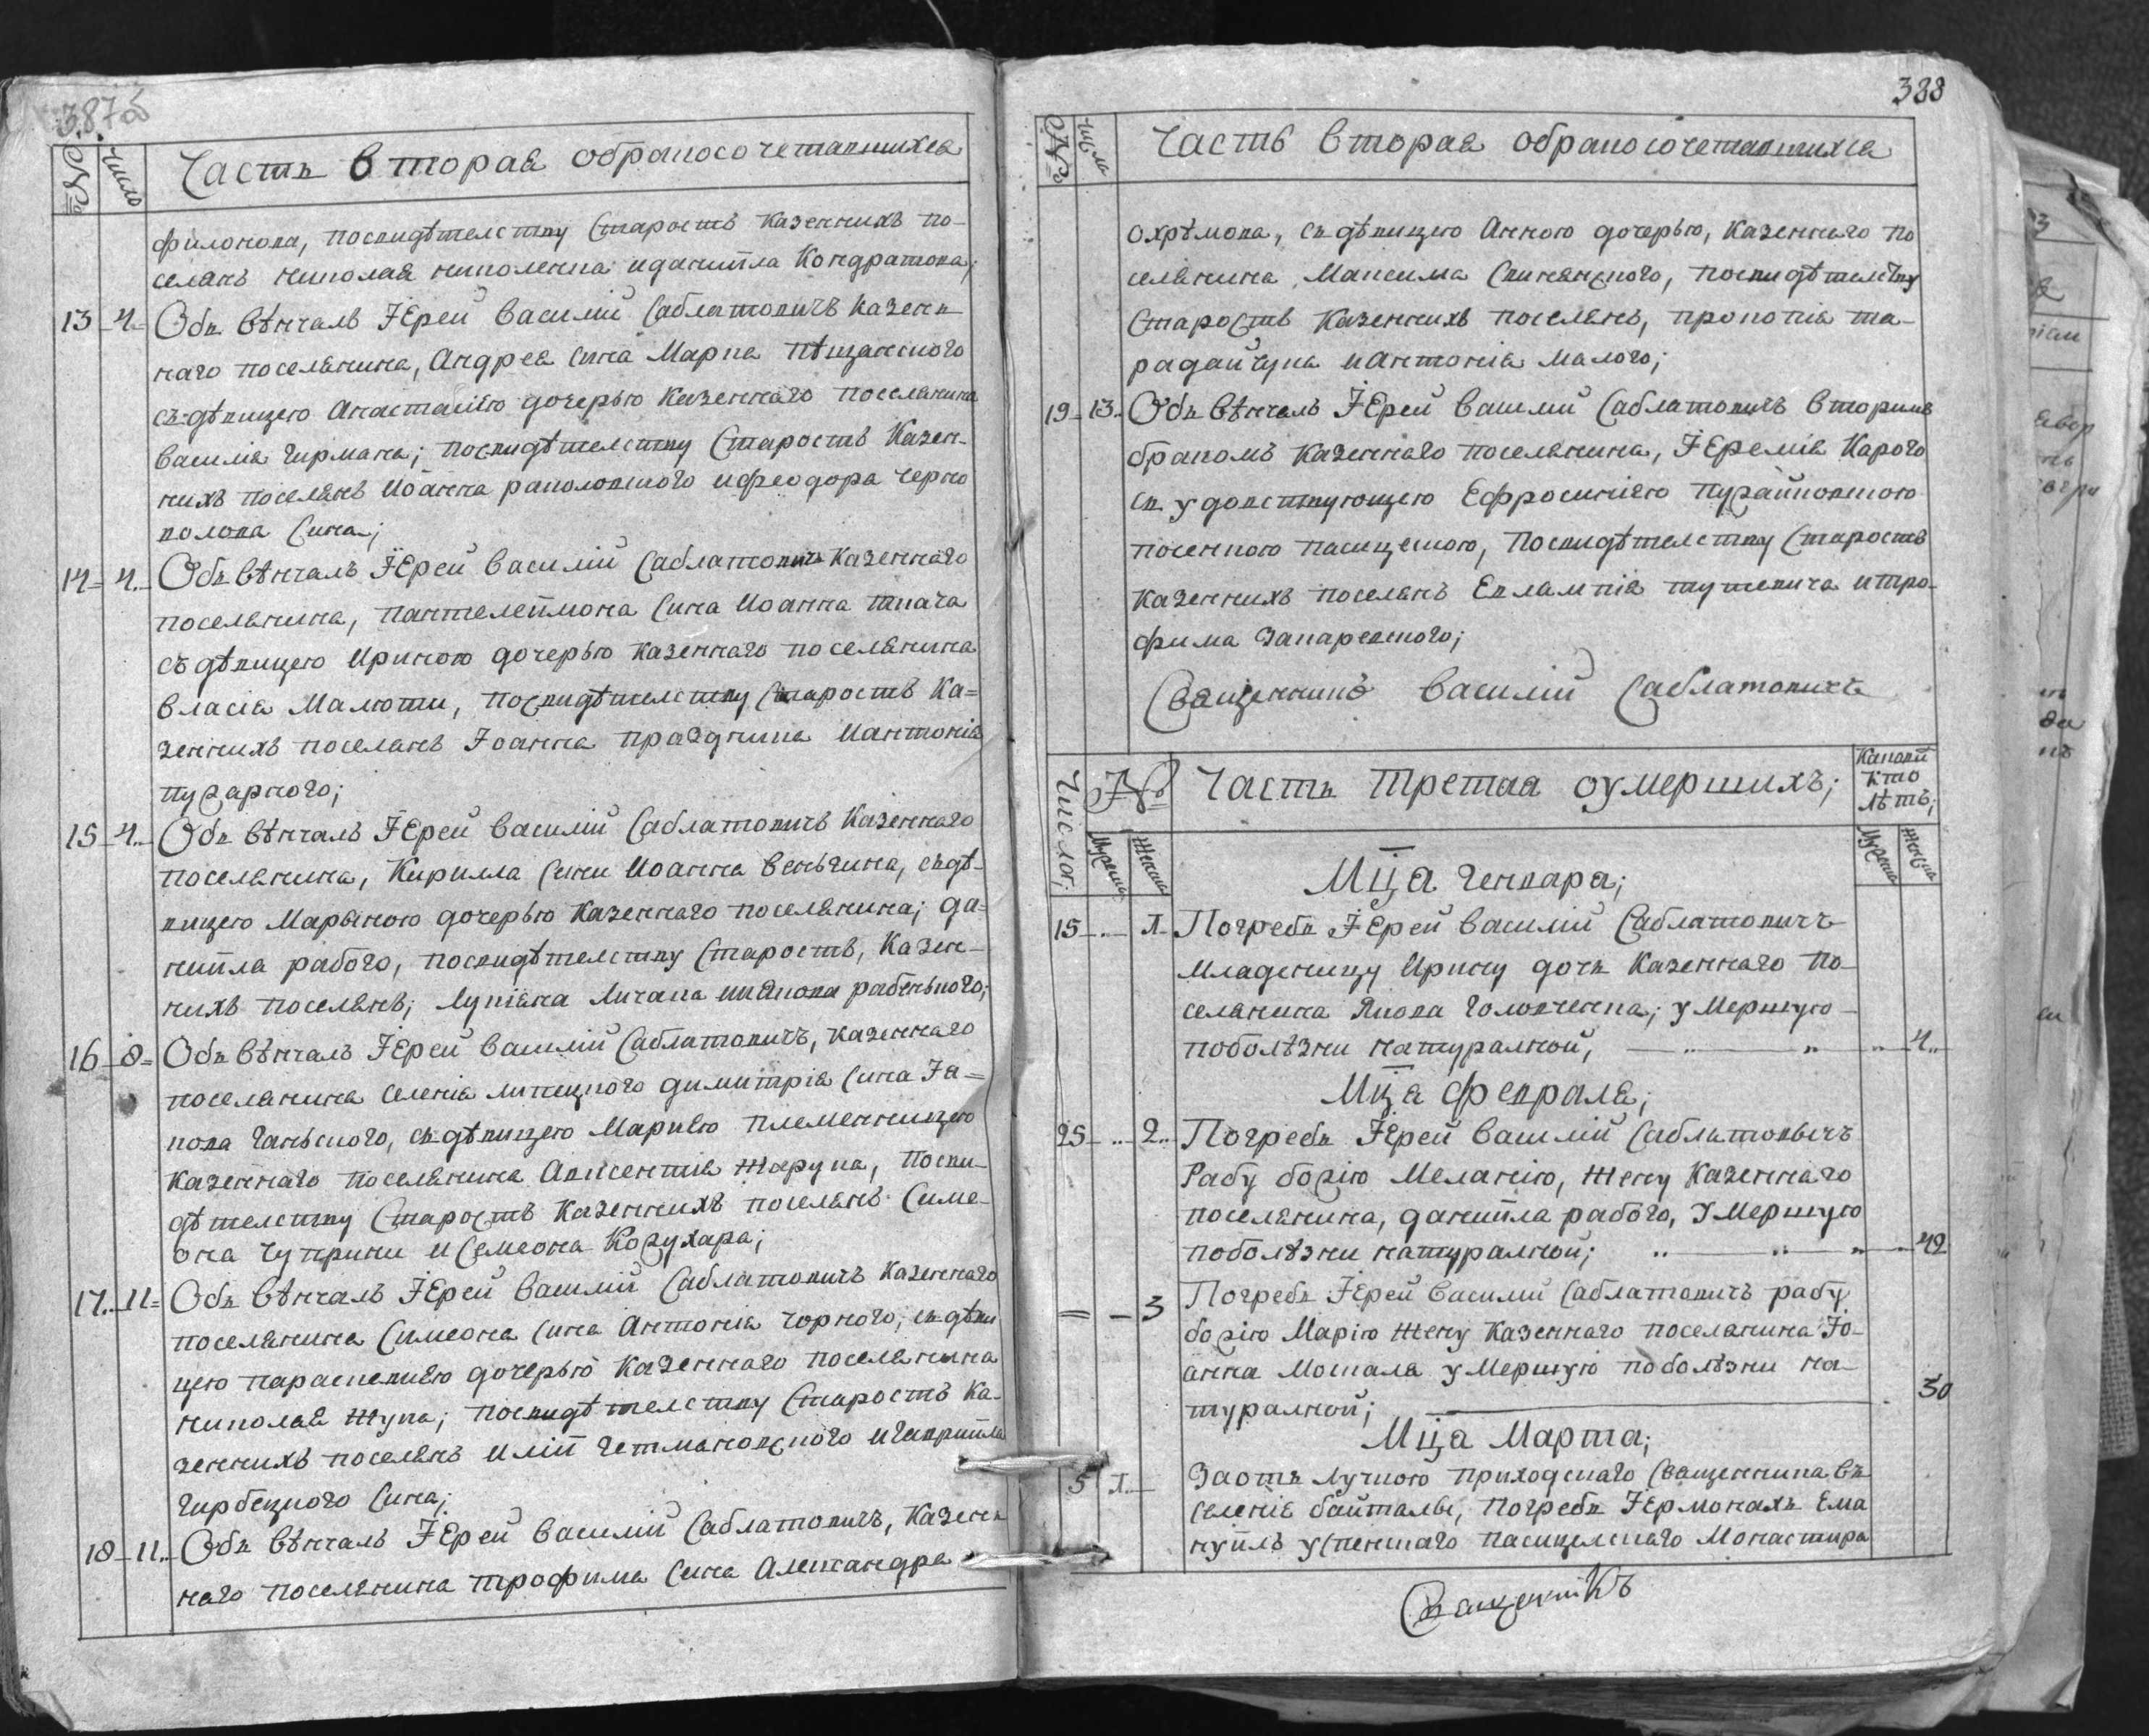 387 об
№ Число Часть вторая обракосочетавшихся
филонова, посвидѣтелству старостъ казеннихъ по-
селянъ николая николенка иданіила Кондратова;
13 4 Обвѣнчалъ Іерей василій Саблатовичъ казенн
наго поселянина, Андрея сина Марка пѣщанского
съдѣвицею Анастасіею дочерью казеннаго поселянина
василія гирмана; посвидѣтелству старостъ казен-
нихъ поселянъ Иоанна раколовского ифеодора черно
волова сина;
14 4 Обвѣнчалъ Іерей василій Саблатовичъ казеннаго
поселянина, пантелеймона сина Иоанна ткача
съдѣвицею Ириною дочерью казеннаго поселянина
власія Малюти, посвидѣтелству старостъ ка=
зеннихъ поселянъ Іоанна праздника иантонія
пугарного;
15 4 Обвѣнчалъ Іерей василій Саблатовичъ казеннаго
поселянина, Кирилла сина Иоанна веньгина, съдѣ-
вицею Марьяною дочерью казеннаго поселянина; да=
ніила рабого, посвидѣтелству старостъ, казен-
нихъ поселянъ; лукіяна личака ииякова рабеньного;
16 8 Обвѣнчалъ Іерей василій Саблатовичъ, казеннаго
поселянина селенія липецкого димитрія сина Іа=
кова ганьского, съдѣвицею Маріею племенницею
казеннаго поселянина Авксентія жарука, посви-
дѣтелству старостъ казеннихъ поселянъ Симе-
она чуприни исемеона Кожухара;
17 11 Обвѣнчалъ Іерей василій Саблатовичъ казеннаго
поселянина Симеона сина Антонія чорного, съдѣви
цею параскевиею дочерью казеннаго поселянина
николая жука; посвидѣтелству старостъ ка-
зеннихъ поселянъ иліи гетмановского игавріила
гирбецкого сина;
18 11 Обвѣнчалъ Іерей василій Саблатовичъ, казенн
наго поселянина трофима сина Александра
388
№ Число Часть вторая обракосочетавшихся
охрѣмова, съдѣвицею Анною дочерью, казеннаго по
селянина, Максима Свинянского, посвидѣтелству
старостъ казеннихъ поселянъ, прокопія та-
радайчука иантонія малого;
19 13 Обвѣнчалъ Іерей василій Саблатовичъ вторимъ
бракомъ казеннаго поселянина, Іеремія Карого
съ удовствующею Ефросиніею
казеннихъ поселянъ Евлампія тушевича итро-
фима Запаревского;
Священникъ василій Саблатовичъ
Число; № Часть третая оумершихъ; Каковы кто лѣтъ;
Мужеска Женска Мужеска Женска
Мца генвара;
15 1 Погребъ Іерей василій Саблатовичъ
младеницу Ирину дочь казеннаго по-
селянина Якова головченка; умершую
поболѣзни натуралной, 4
Мца февраля;
25 2 Погребъ Іерей василій Саблатовычъ
Рабу божію Меланію, жену казеннаго
поселянина, даніила рабого, умершую
поболѣзни натуралной; 42
= 3 Погребъ Іерей василій Саблатовичъ рабу
божію Марію жену казеннаго поселянина Іо-
анна Москаля умершую поболѣзни на-
туралной; 30
Мца Марта;
5 1 Заотълучкою приходскаго священника въ
селеніе байталы, погребъ Іермонахъ Ема
нуилъ успенскаго пасицелскаго монастиря
Священникъ